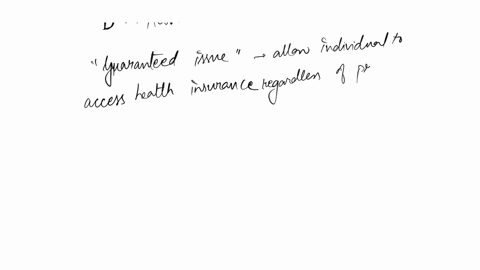 "Guaranteed issue" → allow individual to
access health insurance regardless of pr